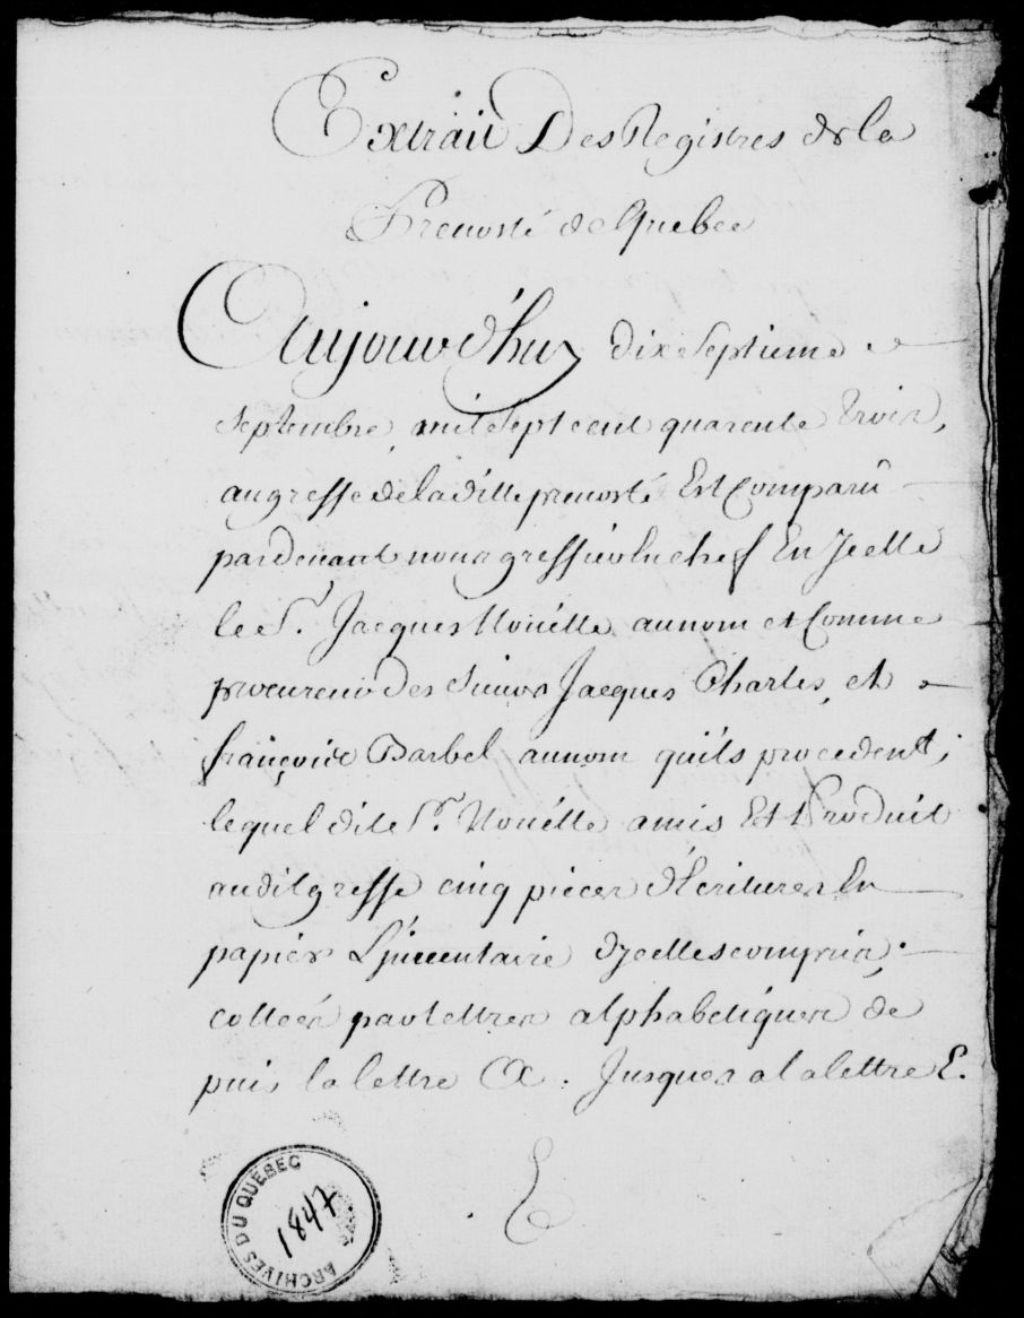 Extrait Des Registres de la
Prevosté de Quebec
Aujourd'huy dix Septieme
Septembre mil Sept cent quarente trois,
au greffe de la ditte prevosté Est Comparû
pardevant nous greffier En chef En Jcelle
le Sr. Jacques Nouëtte au nom et Comme
procureur des sieurs Jacques Charles, et
françoise Barbel au nom quils procedent;
lequel dit Sr. Nouëtte a mis Et Produit
audit greffe cinq pieces d'Ecritures En
papier L'jnventaire d'jcelles compris,
cottées par lettres alphabetiques de
puis la lettre A. Jusques a la lettre E.
E
ARCHIVES DU QUÉBEC
1847